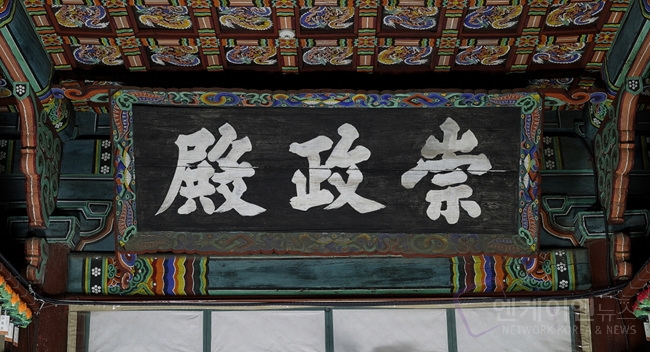 崇政殿
엔케이엔뉴스
NETWORK KOREA & NEWS